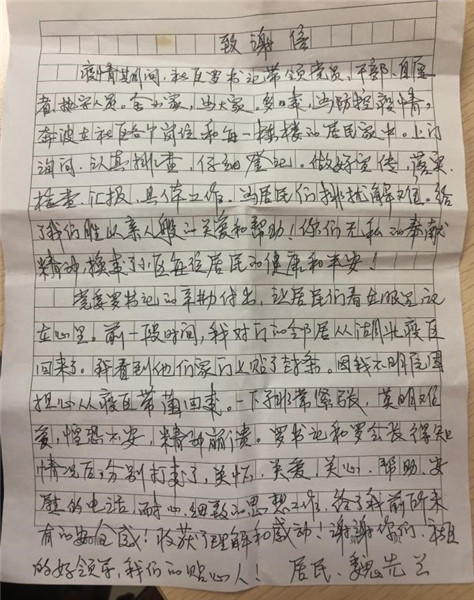 致谢信
疫情期间，社区罗书记带领党员、干部、自愿
者、执字人员。舍小家，为大家，冬日寒，为防控疫情，
奔波在社区各个岗位和每一栋楼的居民家中。上门
询问、认真排查，仔细登记。做好宣传，落实、
检查、汇报，具体工作。为居民们排扰解难。给
了我们胜似亲人般的关爱和帮助！你们无私的奉献
精神换来了小区每位居民的健康和平安！
党委罗书记的辛勤付出，让居民们看在眼里，记
在心里。前一段时间，我对门的邻居从湖北疫区
回来了。我看到他们家门上贴了封条。因我不明原因
担心从疫区带菌回来。一下子非常紧张，莫明难
受，惶恐不安，精神崩溃。罗书记和罗会长得知
情况后，分别打来了，关怀、关爱、关心、帮助、安
慰的电话，耐心、细致的思想工作，给了我前所未
有的安全感！收获了理解和感动！谢谢你们，社区
的好领导，我们的贴心人！ 居民、魏先兰